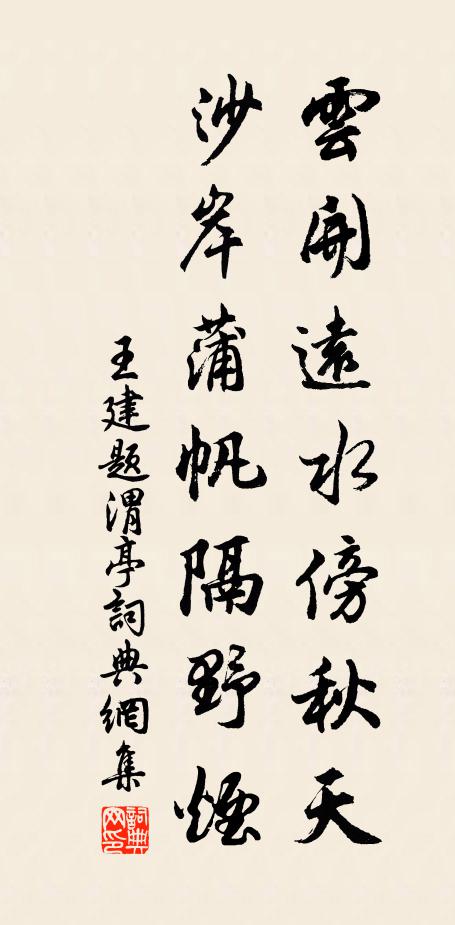 雲開遠水傍秋天
沙岸蒲帆隔野煙
王建題渭亭詞典網集
詞典网印